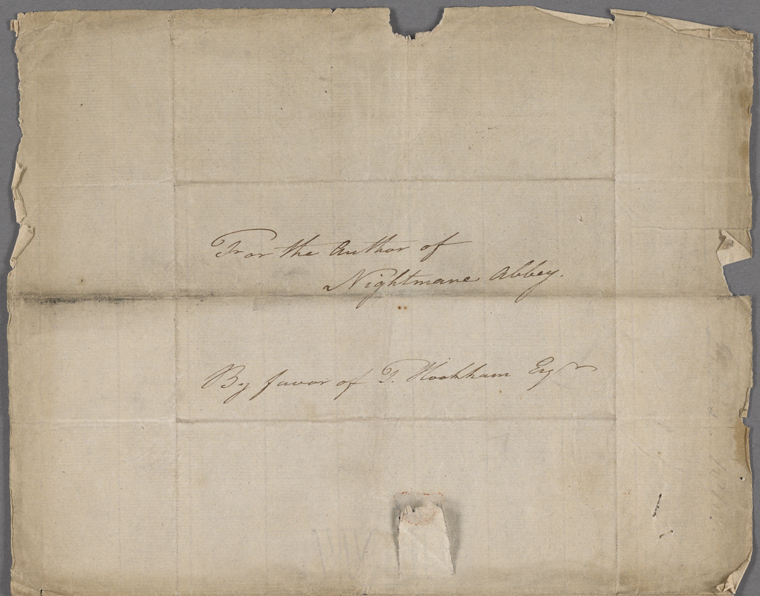 For the Author of
Nightmare Abbey.
By favor of T. Hookham Esqr